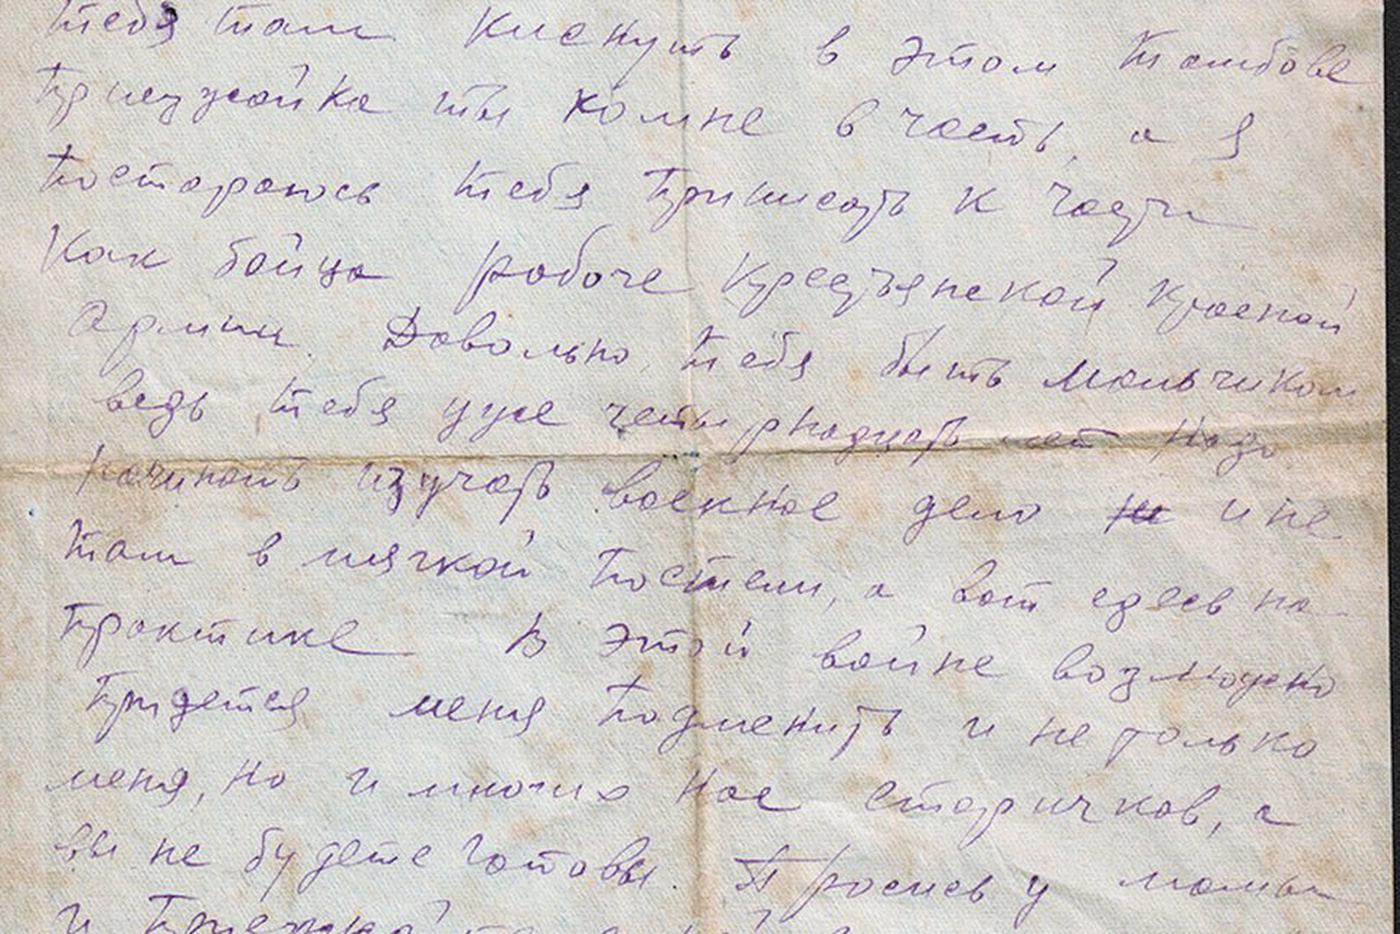 тебя там киснуть в этом Тамбове
приезжайка ты ко мне в часть, а я
постараюсь тебя приписать к части
как бойца рабоче крестьянской красной
армии. Довольно тебя быть мальчиком
ведь тебя уже четырнадцать лет надо
начинать изучать военное дело и не
там в мягкой постели, а вот здесь на
практике В этой войне возможно
придется меня подменить и не только
меня, но и многих нас старичков, а
вы не будете готовы. Просись у мамы
и приезжай